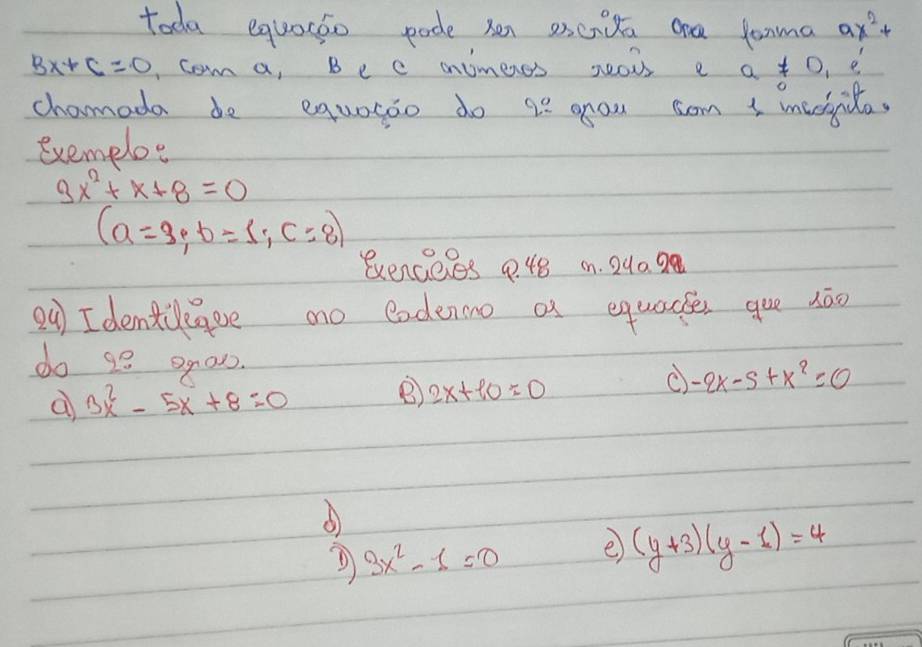 Toda equação pode ser escrita na forma ax²+
Bx+C=0, com a, B e C números reais e a ≠ 0, é
chamada de equação do 2º grau com 1 incógnita.
Exemplo:
3x²+x+8=0
(a=3; b=1; c=8)
Exercícios P.48 n.24 a 29
24) Identifique no Caderno as equações que são
do 2º grau.
a) 3x² - 5x +8=0 B) 2x+10=0 C) -2x-5+x²=0
d)
D) 3x²-1=0 e) (y+3)(y-1)=4